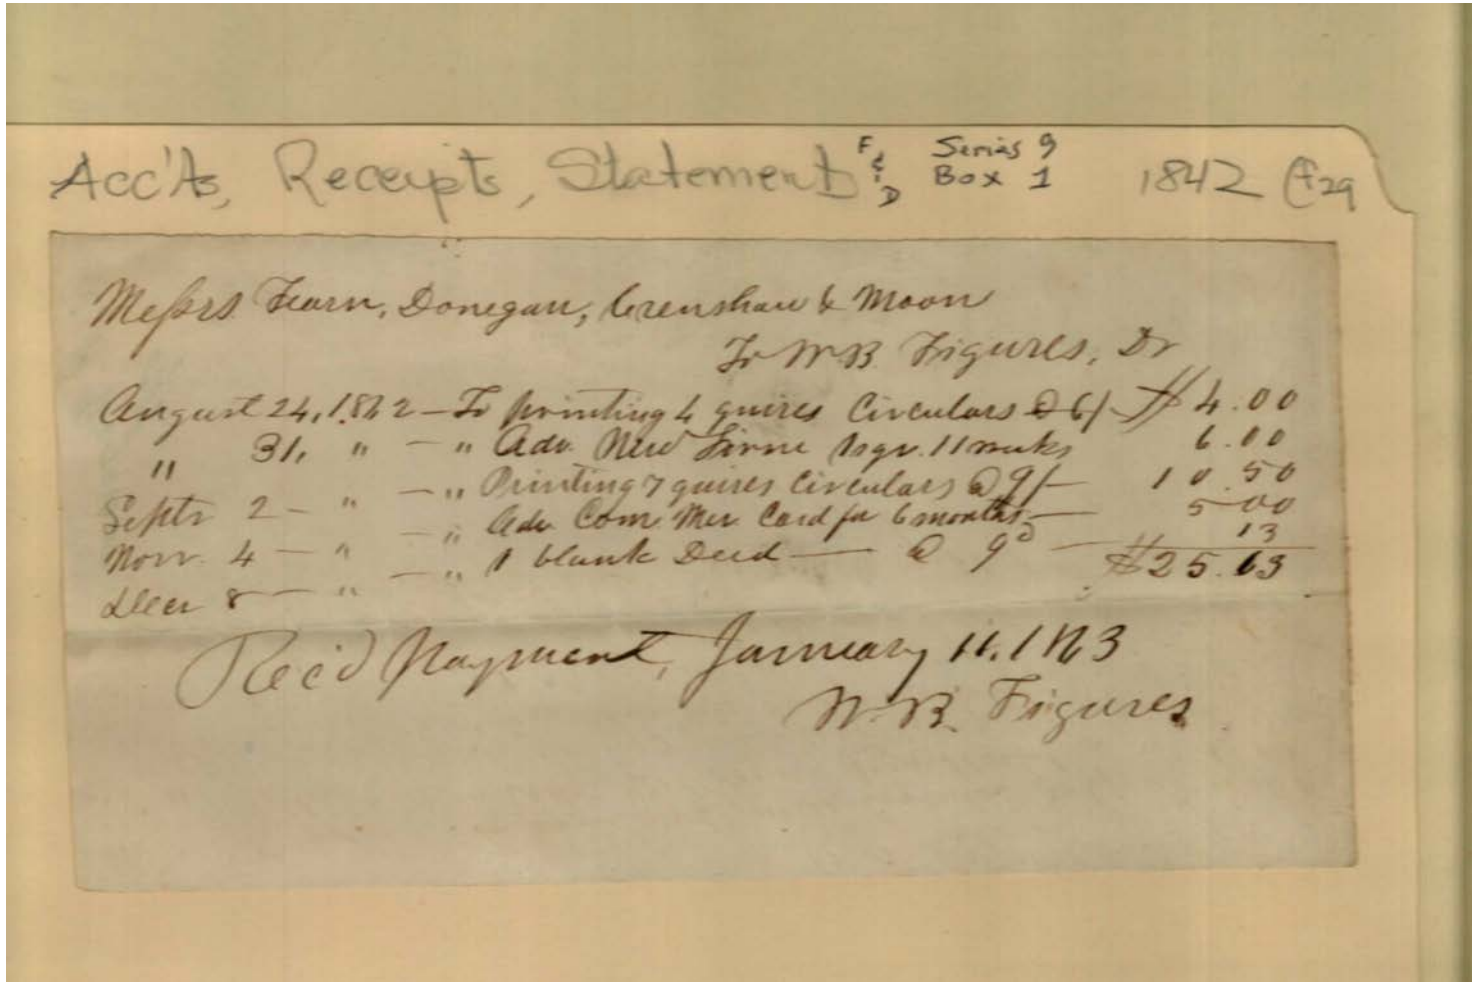 Acc'ts, Receipts, Statement F & D Series 9 Box 1 1842 (F29
Messrs Fearn, Donegan, Crenshaw & Moon
To W.B. Figures, Dr
August 24, 1842 – To printing 4 quires Circulars @ 6/ – $4.00
" 31, " – " Adv. New Firm 1 sqr. 11 weeks 6.00
Septr 2 – " – " Printing 7 quires Circulars @ 9/ – 10.50
Novr. 4 – " – " Adv. Com. Mer. Card for 6 months – 5.00
Decr 8 – " – " 1 blank Deed – @ 9d – 13
$25.63
Rec'd Payment, January 11, 1843
W.B. Figures